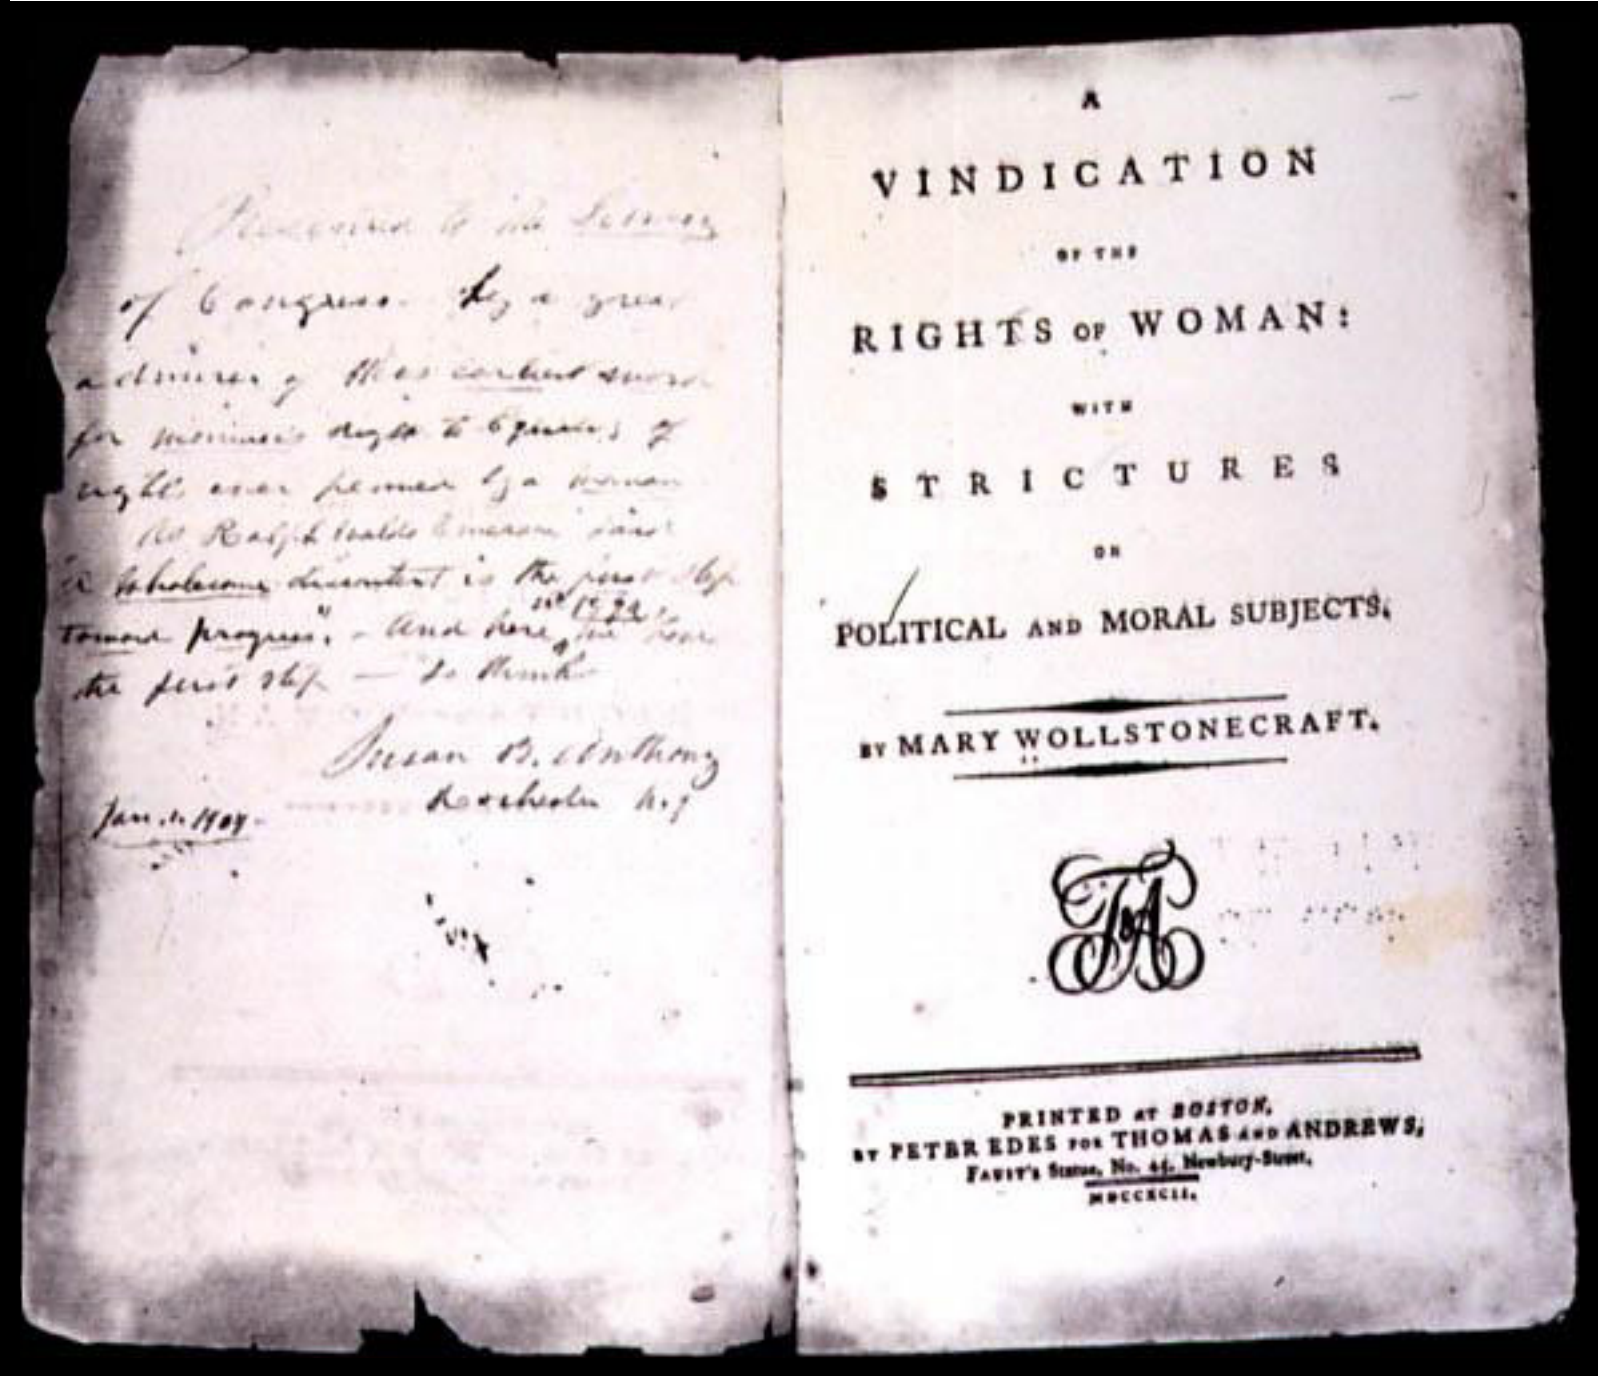 Presented to the Library
of Congress. by a great
admirer of this earliest
for woman's right to Equality of
rights ever penned by a woman
As Ralph Waldo Emerson said
"A wholesome discontent is the first step
toward progress". - And here in 1792, we have
the first step — So thinks
Susan B. Anthony
Rochester N.Y
Jan. 1. 1904.
A
VINDICATION
OF THE
RIGHTS OF WOMAN:
WITH
STRICTURES
ON
POLITICAL AND MORAL SUBJECTS.
BY MARY WOLLSTONECRAFT.
T&A
PRINTED AT BOSTON,
BY PETER EDES FOR THOMAS AND ANDREWS,
FAUST'S Statue, No. 45, Newbury-Street,
MDCCXCII.